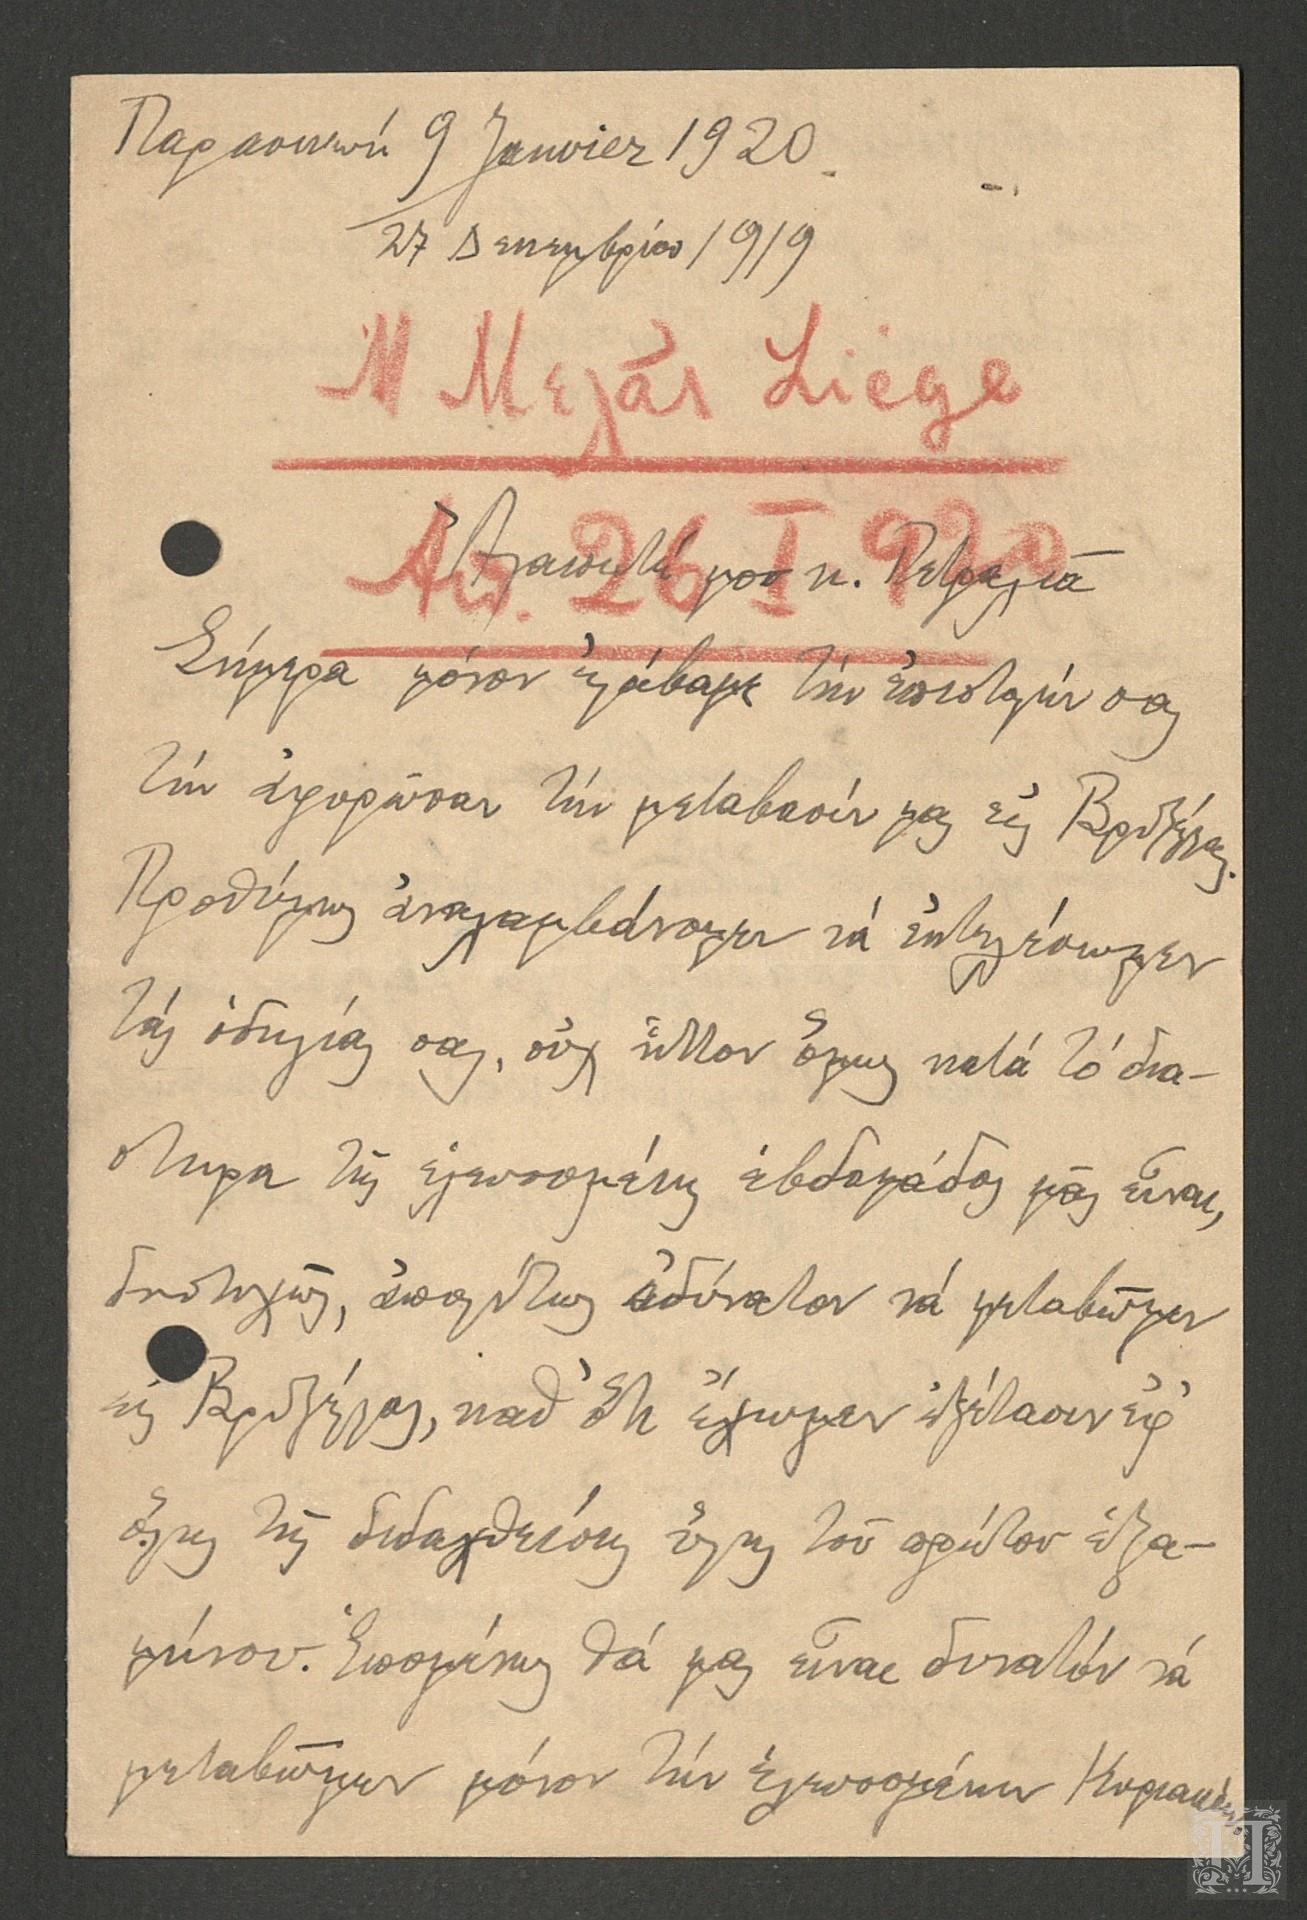 Παρασκευή 9 Janvier 1920
27 Δεκεμβρίου 1919
Μ Μελάς Liège
Απ. 26 I 920
Ἀγαπητέ μου κ. Πετραλιᾶ
Σήμερα μόνον ἐλάβαμε τὴν ἐπιστολήν σας
τὴν ἀφορῶσαν τὴν μετάβασίν μας εἰς Βρυξέλλας.
Προθύμως ἀναλαμβάνομεν νά ἐκτελέσωμεν
τάς ὁδηγίας σας, οὐχ ἧττον ὅμως κατά τό διά-
στημα τῆς ἐλευσομένης ἑβδομάδος μᾶς εἶναι,
δυστυχῶς, ἀπολύτως ἀδύνατον νά μεταβῶμεν
εἰς Βρυξέλλας, καθ' ὅτι ἔχωμεν ἐξέτασιν ἐφ'
ὅλης τῆς διδαχθείσης ὕλης τοῦ πρώτου ἑξα-
μήνου. Ἑπομένως θά μας εἶναι δυνατόν νά
μεταβῶμεν μόνον τήν ἐλευσομένην Κυριακήν,